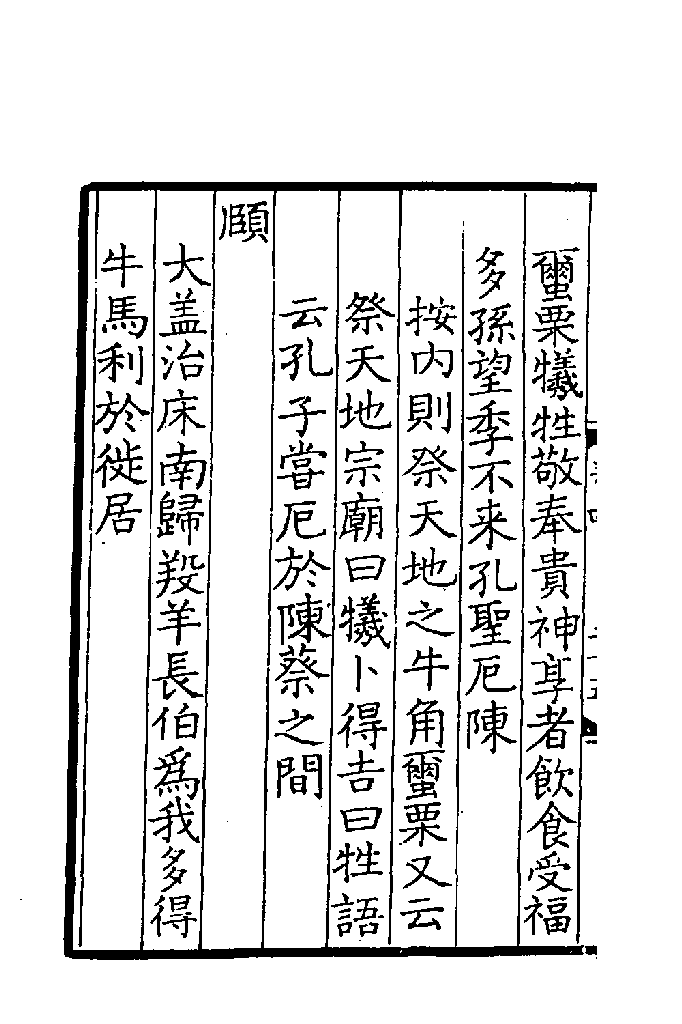 𧖹栗犧牲敬奉貴神享者飲食受福
多孫望季不来孔聖厄陳
按内則祭天地之牛角𧖹栗又云
祭天地宗廟曰犧卜得吉曰牲語
云孔子嘗厄於陳蔡之間
頤
大盖治床南歸羖羊長伯爲我多得
牛馬利於徙居